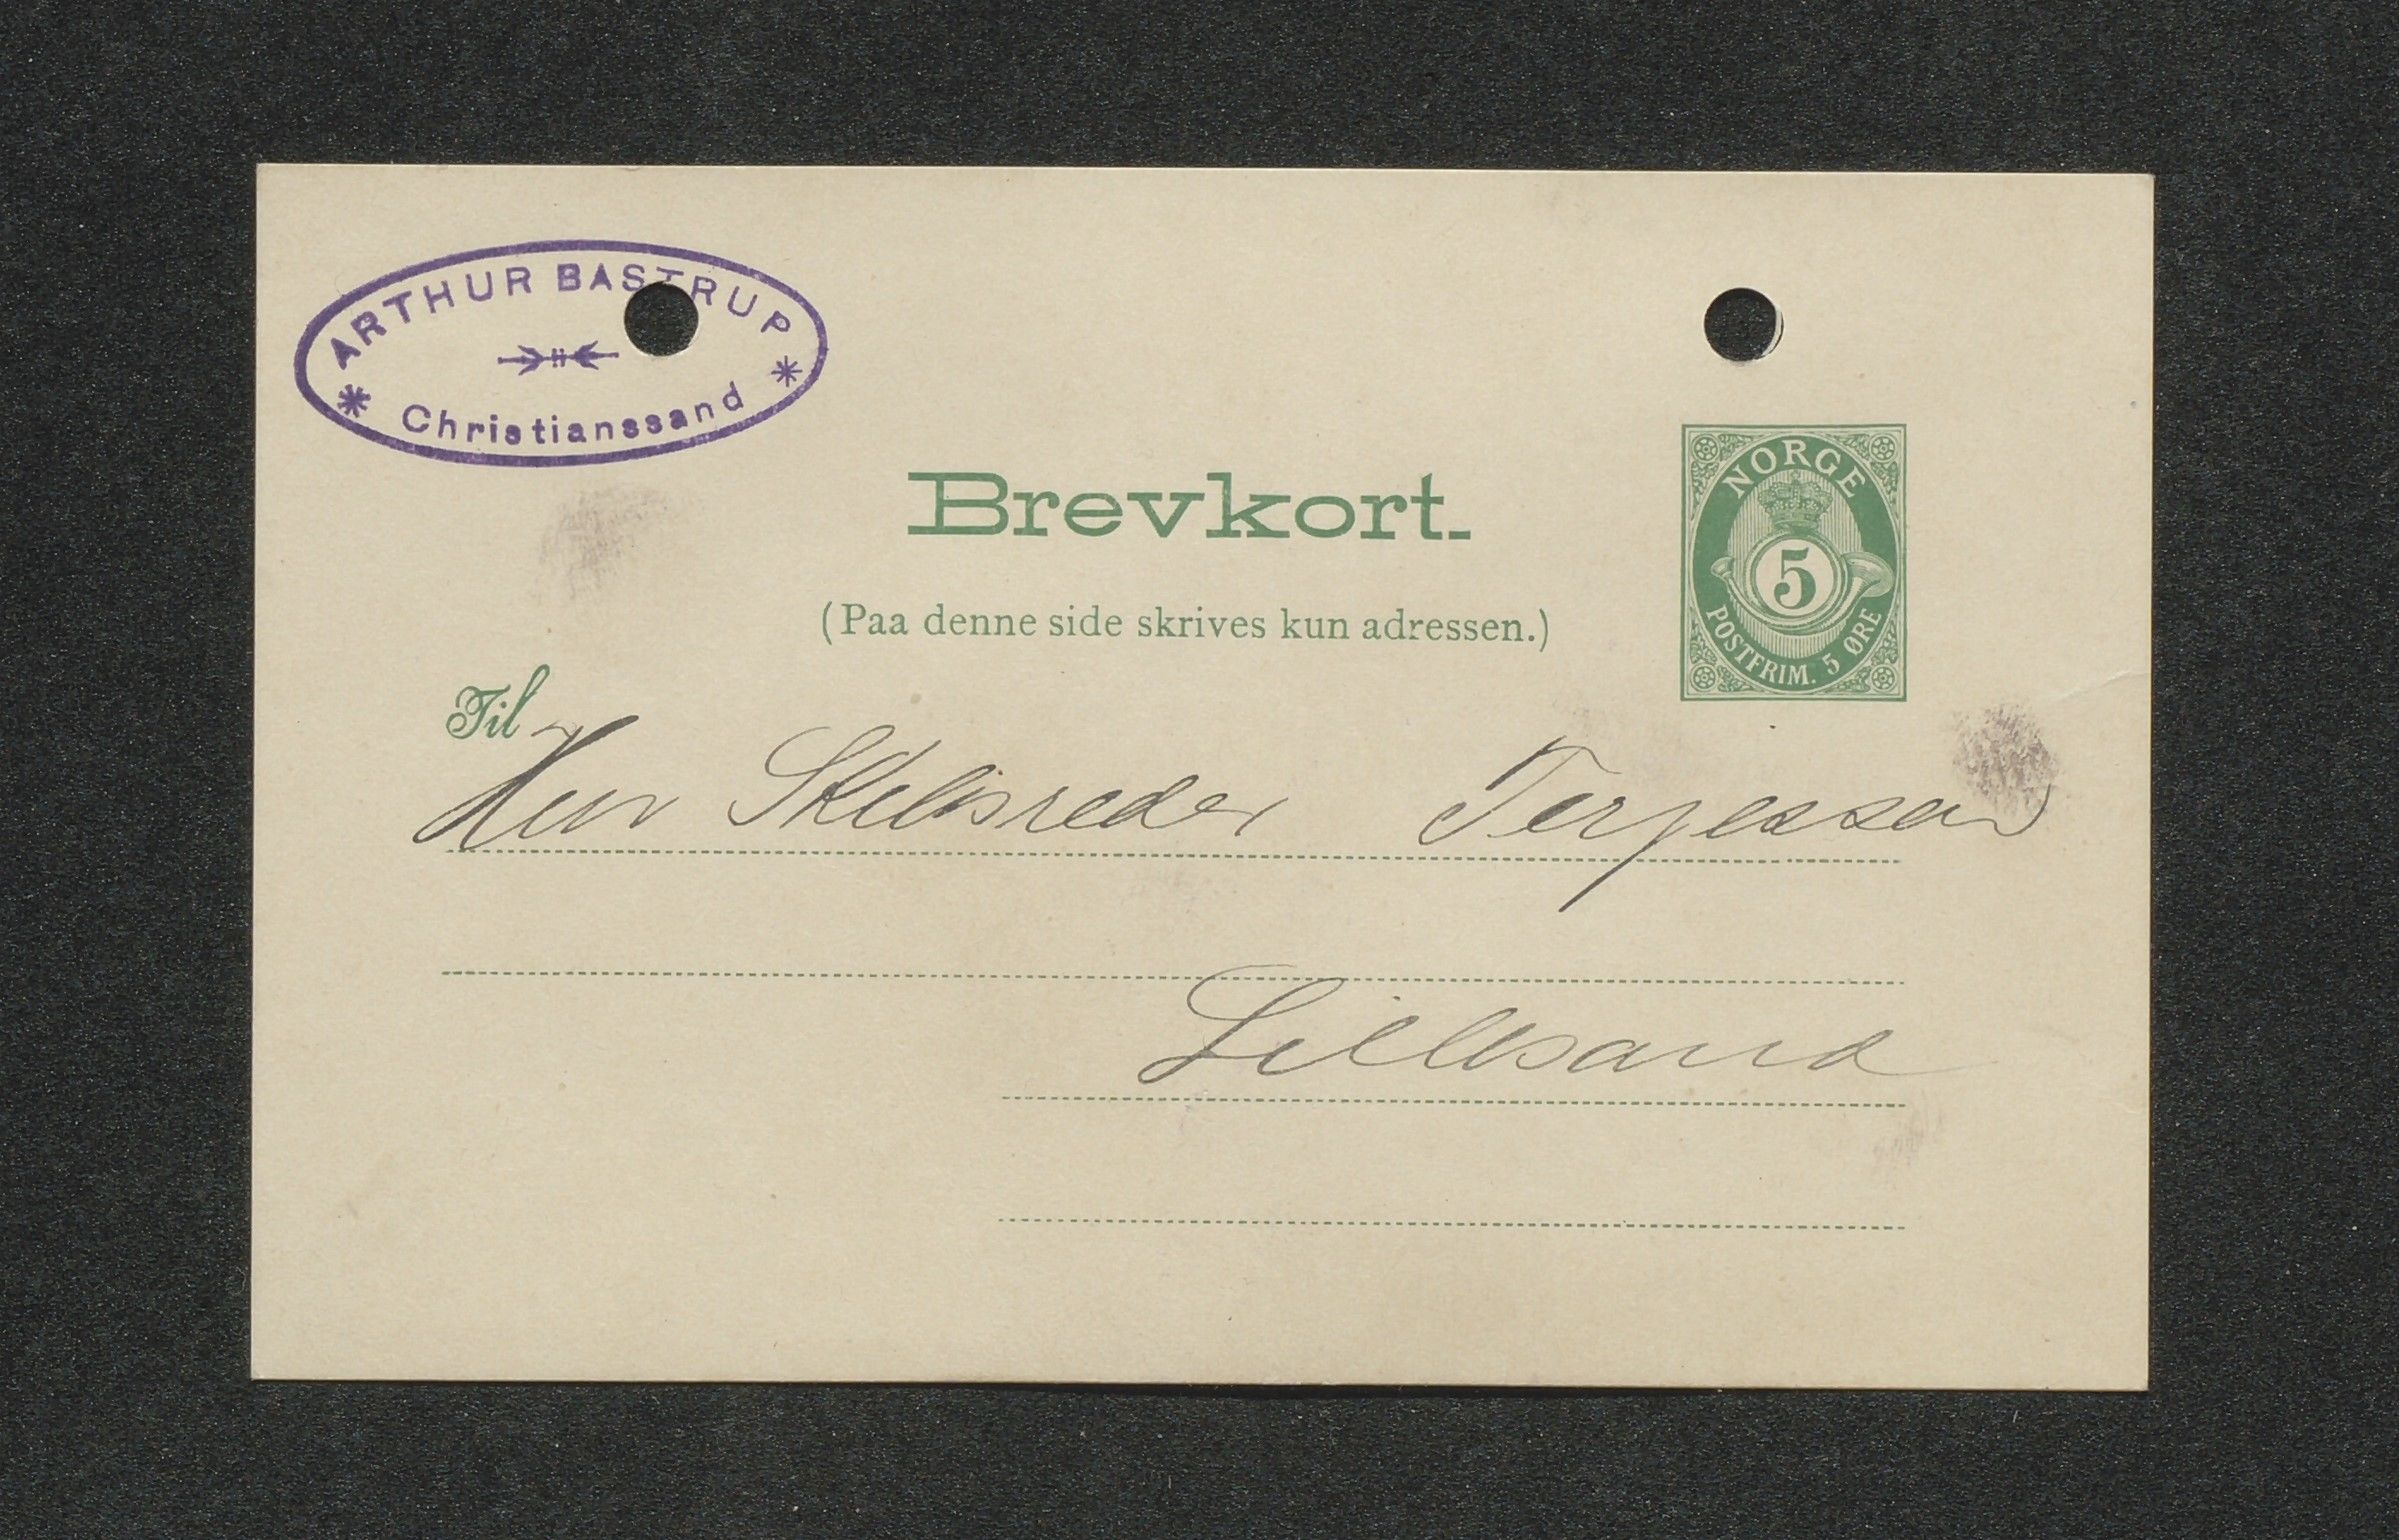 ARTHUR BASTRUP
Christianssand
Brevkort.
(Paa denne side skrives kun adressen.)
NORGE
5
POSTFRIM. 5 ØRE
Til
Herr Skibsreder Terjessen
Lillesand